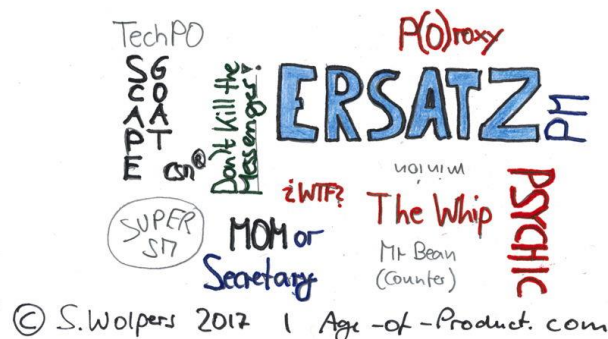 TechPO
P(O)roxy
SCAPE
GOAT
Don't Kill the
Messenger!
ERSATZ
PM
CSM®
minion
¿WTF?
The Whip
PSYCHIC
SUPER
SM
MOM or
Secretary
Mr Bean
(Counter)
© S.Wolpers 2017 | Age-of-Product.com